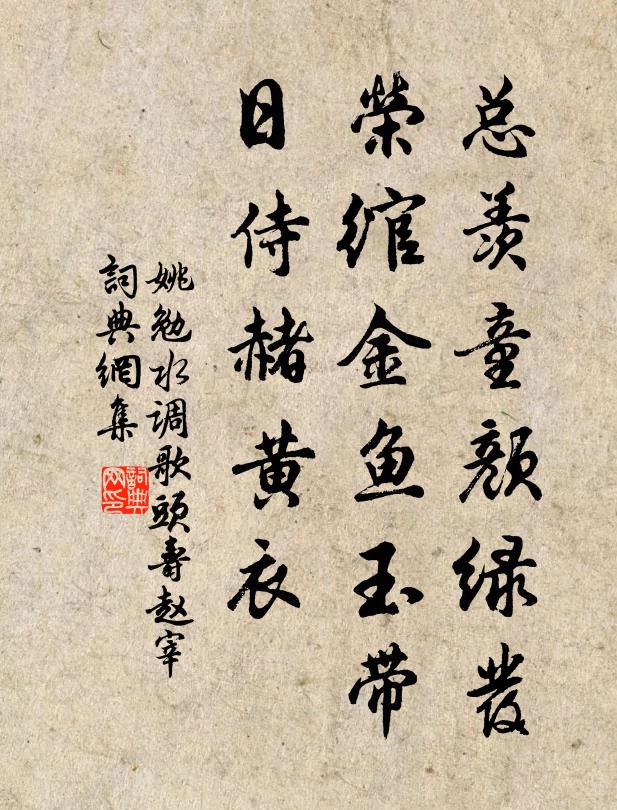 总羡童颜绿发
荣绾金鱼玉带
日侍赭黄衣
姚勉水调歌头寿赵宰
词典網集
詞典
网印